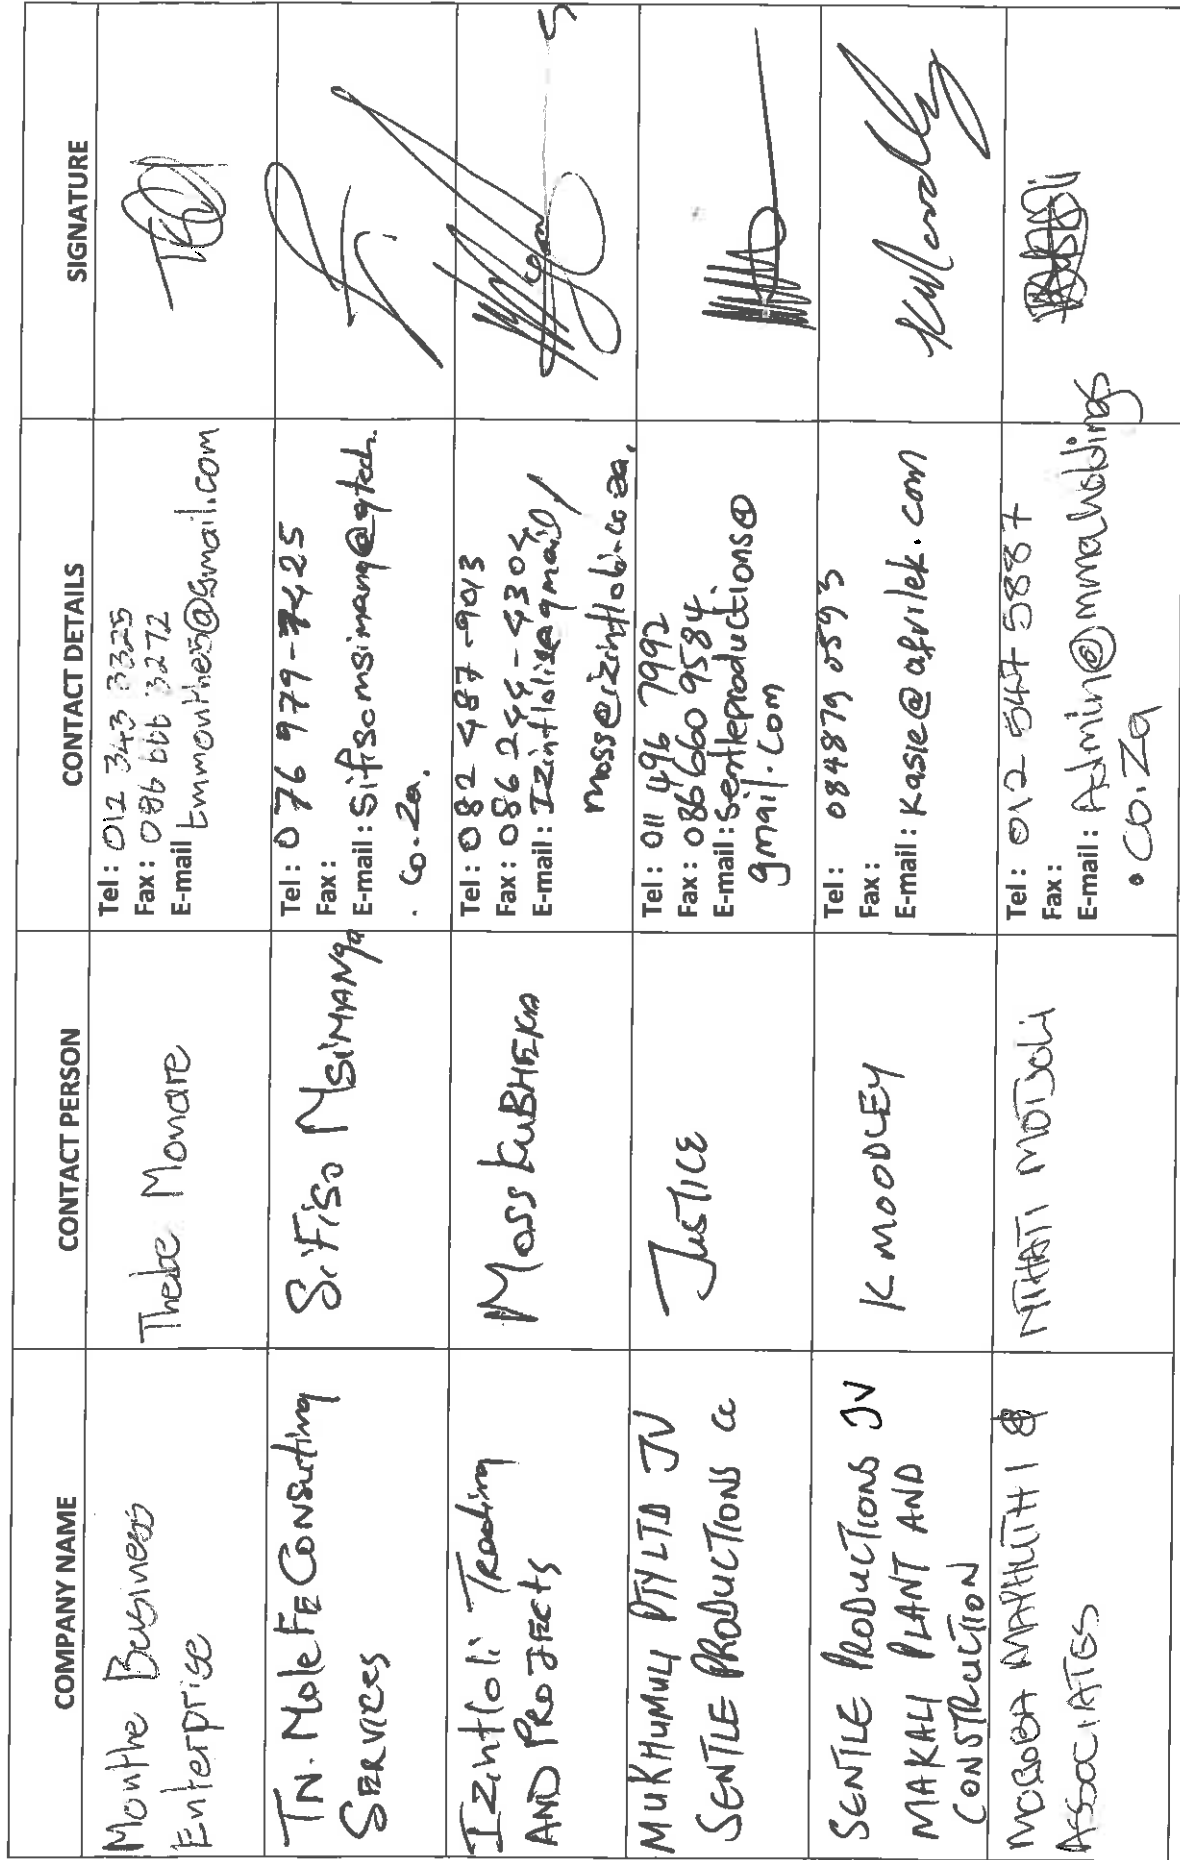 COMPANY NAME
CONTACT PERSON
CONTACT DETAILS
SIGNATURE
Monthe Business
Enterprise
Thebe Monare
Tel : 012 343 3325
Fax : 086 666 3272
E-mail tmmonthe5@gmail.com
TN. MoleFE Consulting
Services
SiFiso MsiMANga
Tel : 076 979-7425
Fax :
E-mail : Sifisomsimang@qtech
. co.za.
Izintloli Trading
AND PROJECTS
Moss KuBHEKA
Tel : 082 487-9013
Fax : 086 244-4304
E-mail : Izintloli@gmail/
moss@izintloli.co.za.
MUKHUMULI PTY LTD JV
SENTLE PRODUCTIONS cc
JusTICE
Tel : 011 496 7992
Fax : 086 660 9584
E-mail : Sentleproductions@
gmail.com
SENTLE PRODUCTIONS JV
MAKALI PLANT AND
CONSTRUCTION
K MOODLEY
Tel : 084879 0593
Fax :
E-mail : Kasie@afrilek.com
ASSOCIATES
Tel : 012 547 5887
Fax :
E-mail : Admin@mmaholdings
.co.za